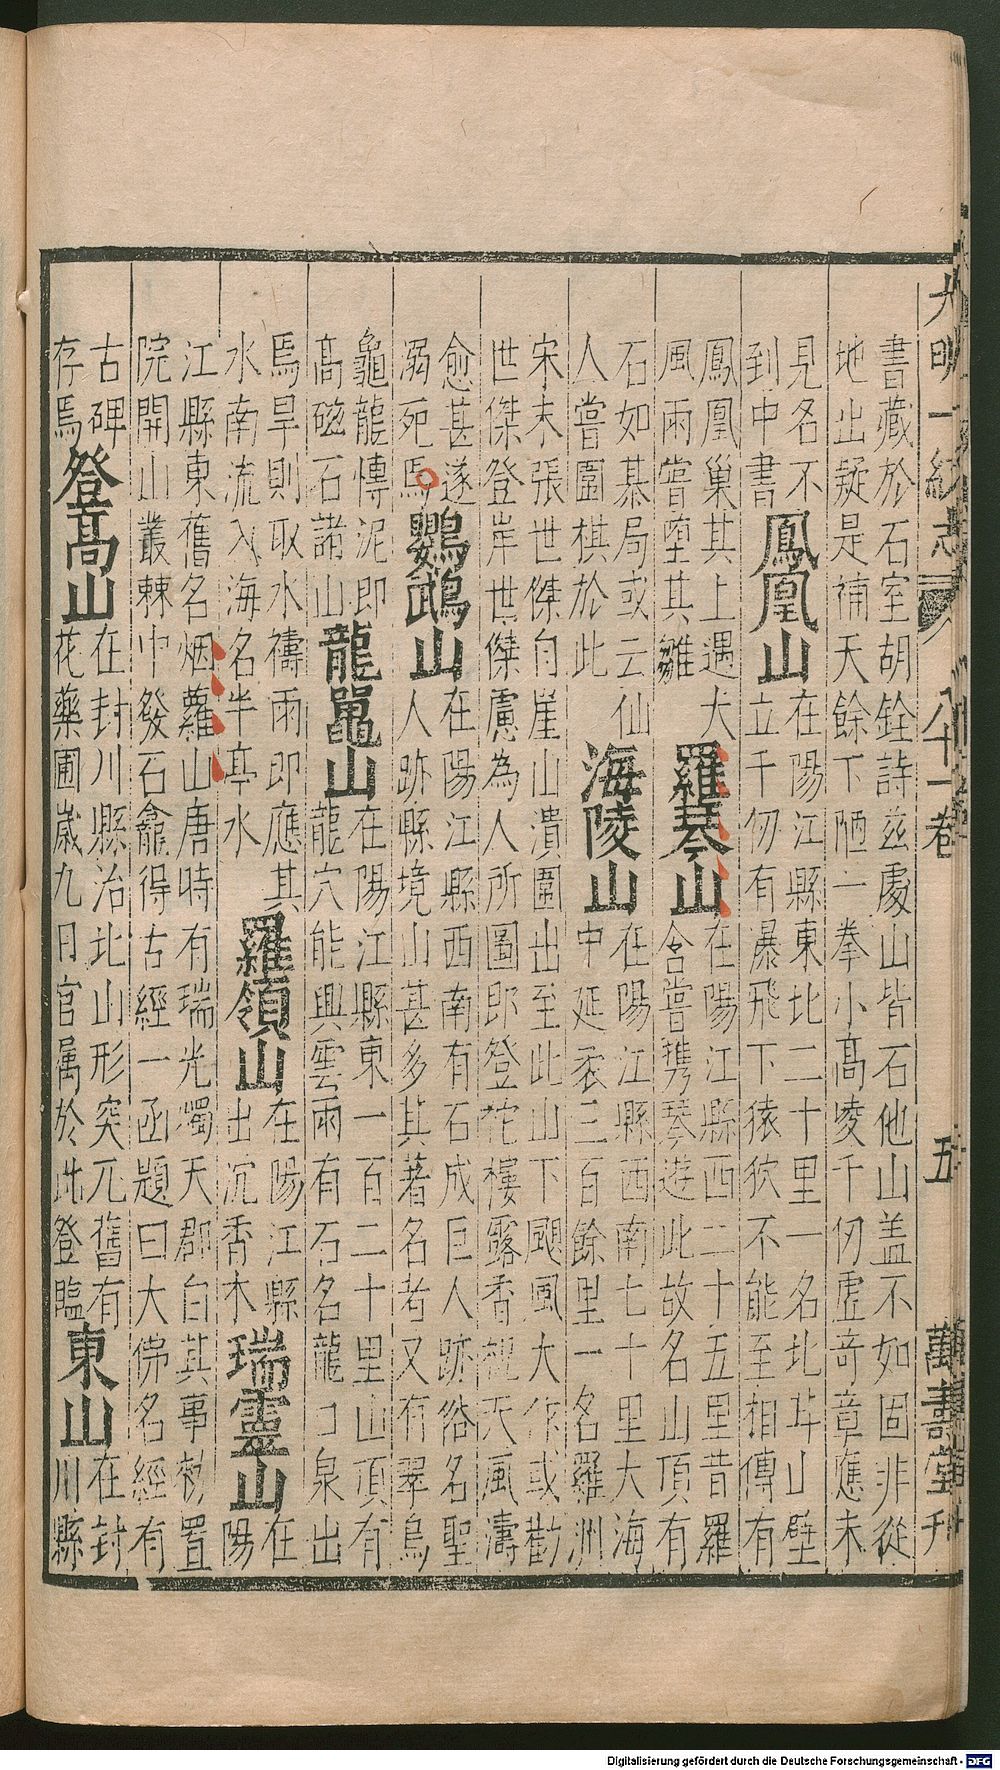 大明一統志 八十一卷 五 萬壽堂刊
書藏於石室胡銓詩茲處山皆石他山盖不如固非從
地出疑是補天餘下陋一拳小高凌千仞虛奇章應未
見名不
到中書
鳳凰山
在陽江縣東北二十里一名北山壁
立千仞有瀑飛下猿狖不能至相傳有
鳳凰巢其上遇大
風雨嘗墮其雛
羅琴山
在陽江縣西二十五里昔羅
含嘗携琴遊此故名山頂有
石如棊局或云仙
人嘗圍棋於此
海陵山
在陽江縣西南七十里大海
中延袤三百餘里一名羅洲
宋末張世傑自崖山潰圍出至此山下颶風大作或勸
世傑登岸世傑慮為人所圖即登柁樓露香祝天風濤
愈甚遂
溺死焉
鸚鵡山
在陽江縣西南有石成巨人跡俗名聖
人跡縣境山甚多其著名者又有翠鳥
龜龍傳泥即
高磁石諸山
龍鼉山
在陽江縣東一百二十里山頂有
龍穴能興雲雨有石名龍口泉出
焉旱則取水禱雨即應其
水南流入海名半亭水
羅嶺山
在陽江縣
出沉香木
瑞靈山
在
陽
江縣東舊名烟蘿山唐時有瑞光燭天郡白其事敕置
院開山叢棘中發石龕得古經一函題曰大佛名經有
古碑
存焉
登高山
在封川縣治北山形突兀舊有
花藥圃歲九日官属於此登臨
東山
在封
川縣
Digitalisierung gefördert durch die Deutsche Forschungsgemeinschaft - DFG